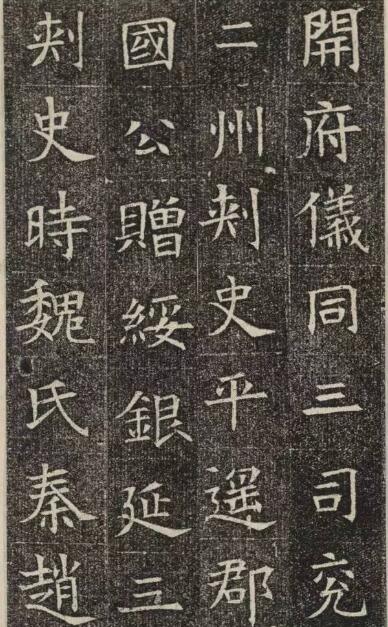 開府儀同三司兖
二州刺史平遥郡
國公贈綏銀延三
刺史時魏氏秦趙